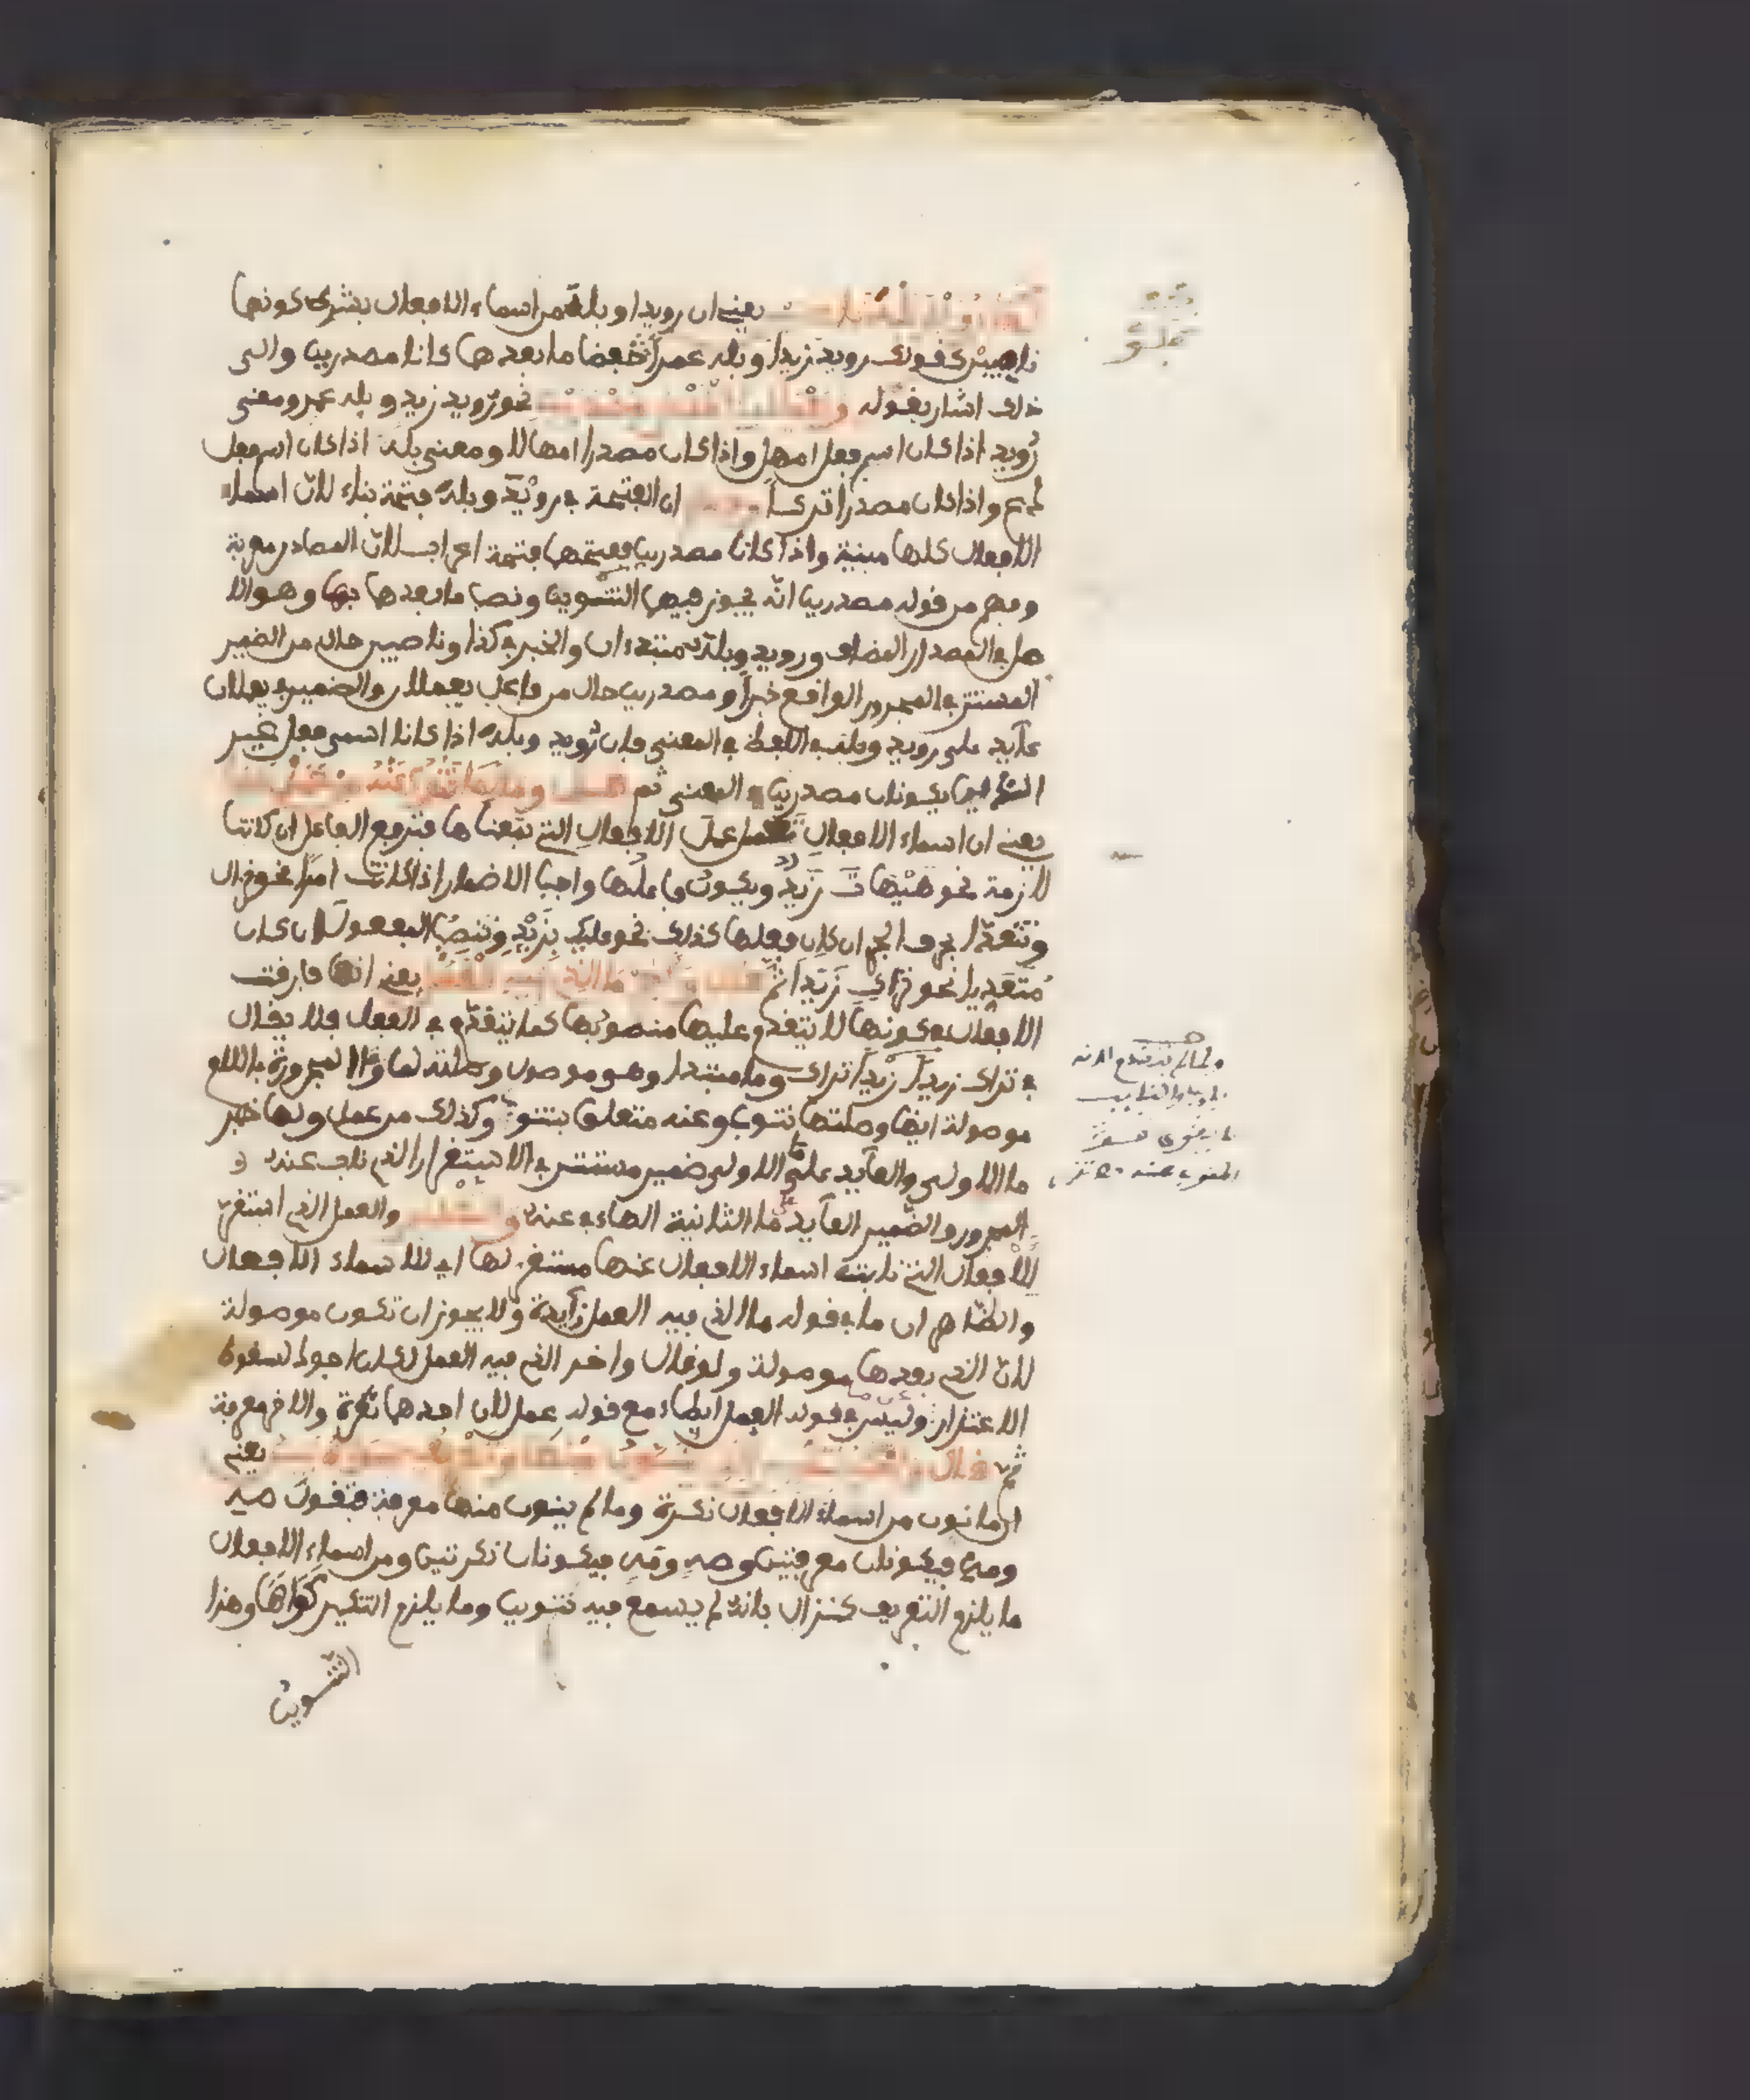 كذا رويد بله ناصبين يعني ان رويدا وبله من اسماء الافعال بشرط كونهما
ناصبين كقولك رويد زيدا وبله عمرا خفضا ما بعدهما كانا مصدرين والى
ذلك اشار بقوله ويعملان الخفض مصدرين نحو رويد زيد وبله عمرو ومعنى
رويد اذا كان اسم فعل امهل واذا كان مصدرا امهالا ومعنى بله اذا كان اسم فعل
دع واذا كان مصدرا تركا ان الفتحة في رويد وبله فتحة بناء لان اسماء
الافعال كلها مبنية واذا كانا مصدرين ففتحهما فتحة اعراب لان المصادر معربة
وفهم من قوله مصدرين انه يجوز فيهما التنوين ونصب ما بعدهما بهما وهو الا
صل في المصدر المضاف ورويد وبله مبتدءان والخبر في كذا وناصبين حال من الضمير
المستتر في المجرور الواقع خبرا ومصدرين حال من فاعل يعملان والضمير في يعملان
عايد على رويد وبله في اللفظ في المعنى فان رويد وبله اذا كانا اسمي فعل غير
يكونان مصدرين في المعنى ثم قال وما لما تنوب عنه من عمل لها
يعني ان اسماء الافعال تعمل عمل الافعال التي بمعناها فترفع الفاعل ان كانت
لازمة نحو هيهات زيد ويكون فاعلها واجب الاضمار اذا كانت امرا نحو نزال
وتتعدا بحرف الجر ان كان فعلها كذلك نحو عليك بزيد وتنصب المفعول ان كان
متعديا نحو تراك زيدا ثم قال واخر ما الذي فيه العمل يعني انها فارقت
الافعال في كونها لا يتقدم عليها منصوبها كما يتقدم في الفعل فلا يقال
في تراك زيدا زيدا تراك وما مبتدا وهو موصول وصلته لما وما المجرورة باللام
موصولة ايضا وصلتها تنوب وعنه متعلق بتنوب وكذلك من عمل ولها خبر
ما الاولى والعايد على ما الاولى ضمير مستتر في الاستقرار الذي ناب عنه
المجرور والضمير العايد على ما الثانية الهاء في عنه والتقدير والعمل الذي استقر
للافعال التي نابت اسماء الافعال عنها مستقر لها اي للاسماء الافعال
والظاهر ان ما في قوله ما الذي فيه العمل زايدة ولا يجوز ان تكون موصولة
لان الذي بعدها موصولة ولو قال واخر الذي فيه العمل لكان اجود لسقوط
الاعتذار وليس في قوله العمل ايطاء مع قوله عمل لان احدهما نكرة والاخر معرفة
ثم قال واحكم بتنكير الذي ينون منها وتعريف سواه بين يعني
ان ما نون من اسماء الافعال نكرة وما لم ينون منها معرفة فتقول صه
ومه فيكونان معرفتين وصه ومه فيكونان نكرتين ومن اسماء الافعال
ما يلزم التعريف كنزال بانه لم يسمع فيه تنوين وما يلزم التنكير كواها وهذا
التنوين